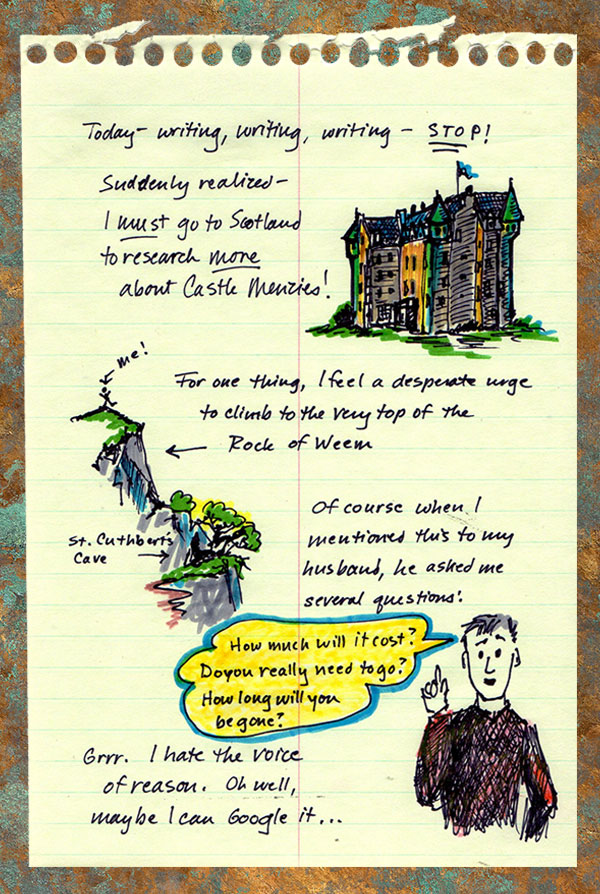 Today- writing, writing, writing - STOP!
Suddenly realized-
I must go to Scotland
to research more
about Castle Menzies!
me!
For one thing, I feel a desperate urge
to climb to the very top of the
Rock of Weem
St. Cuthbert's
Cave
Of course when I
mentioned this to my
husband, he asked me
several questions:
How much will it cost?
Do you really need to go?
How long will you
be gone?
Grrr. I hate the voice
of reason. Oh well,
maybe I can Google it...